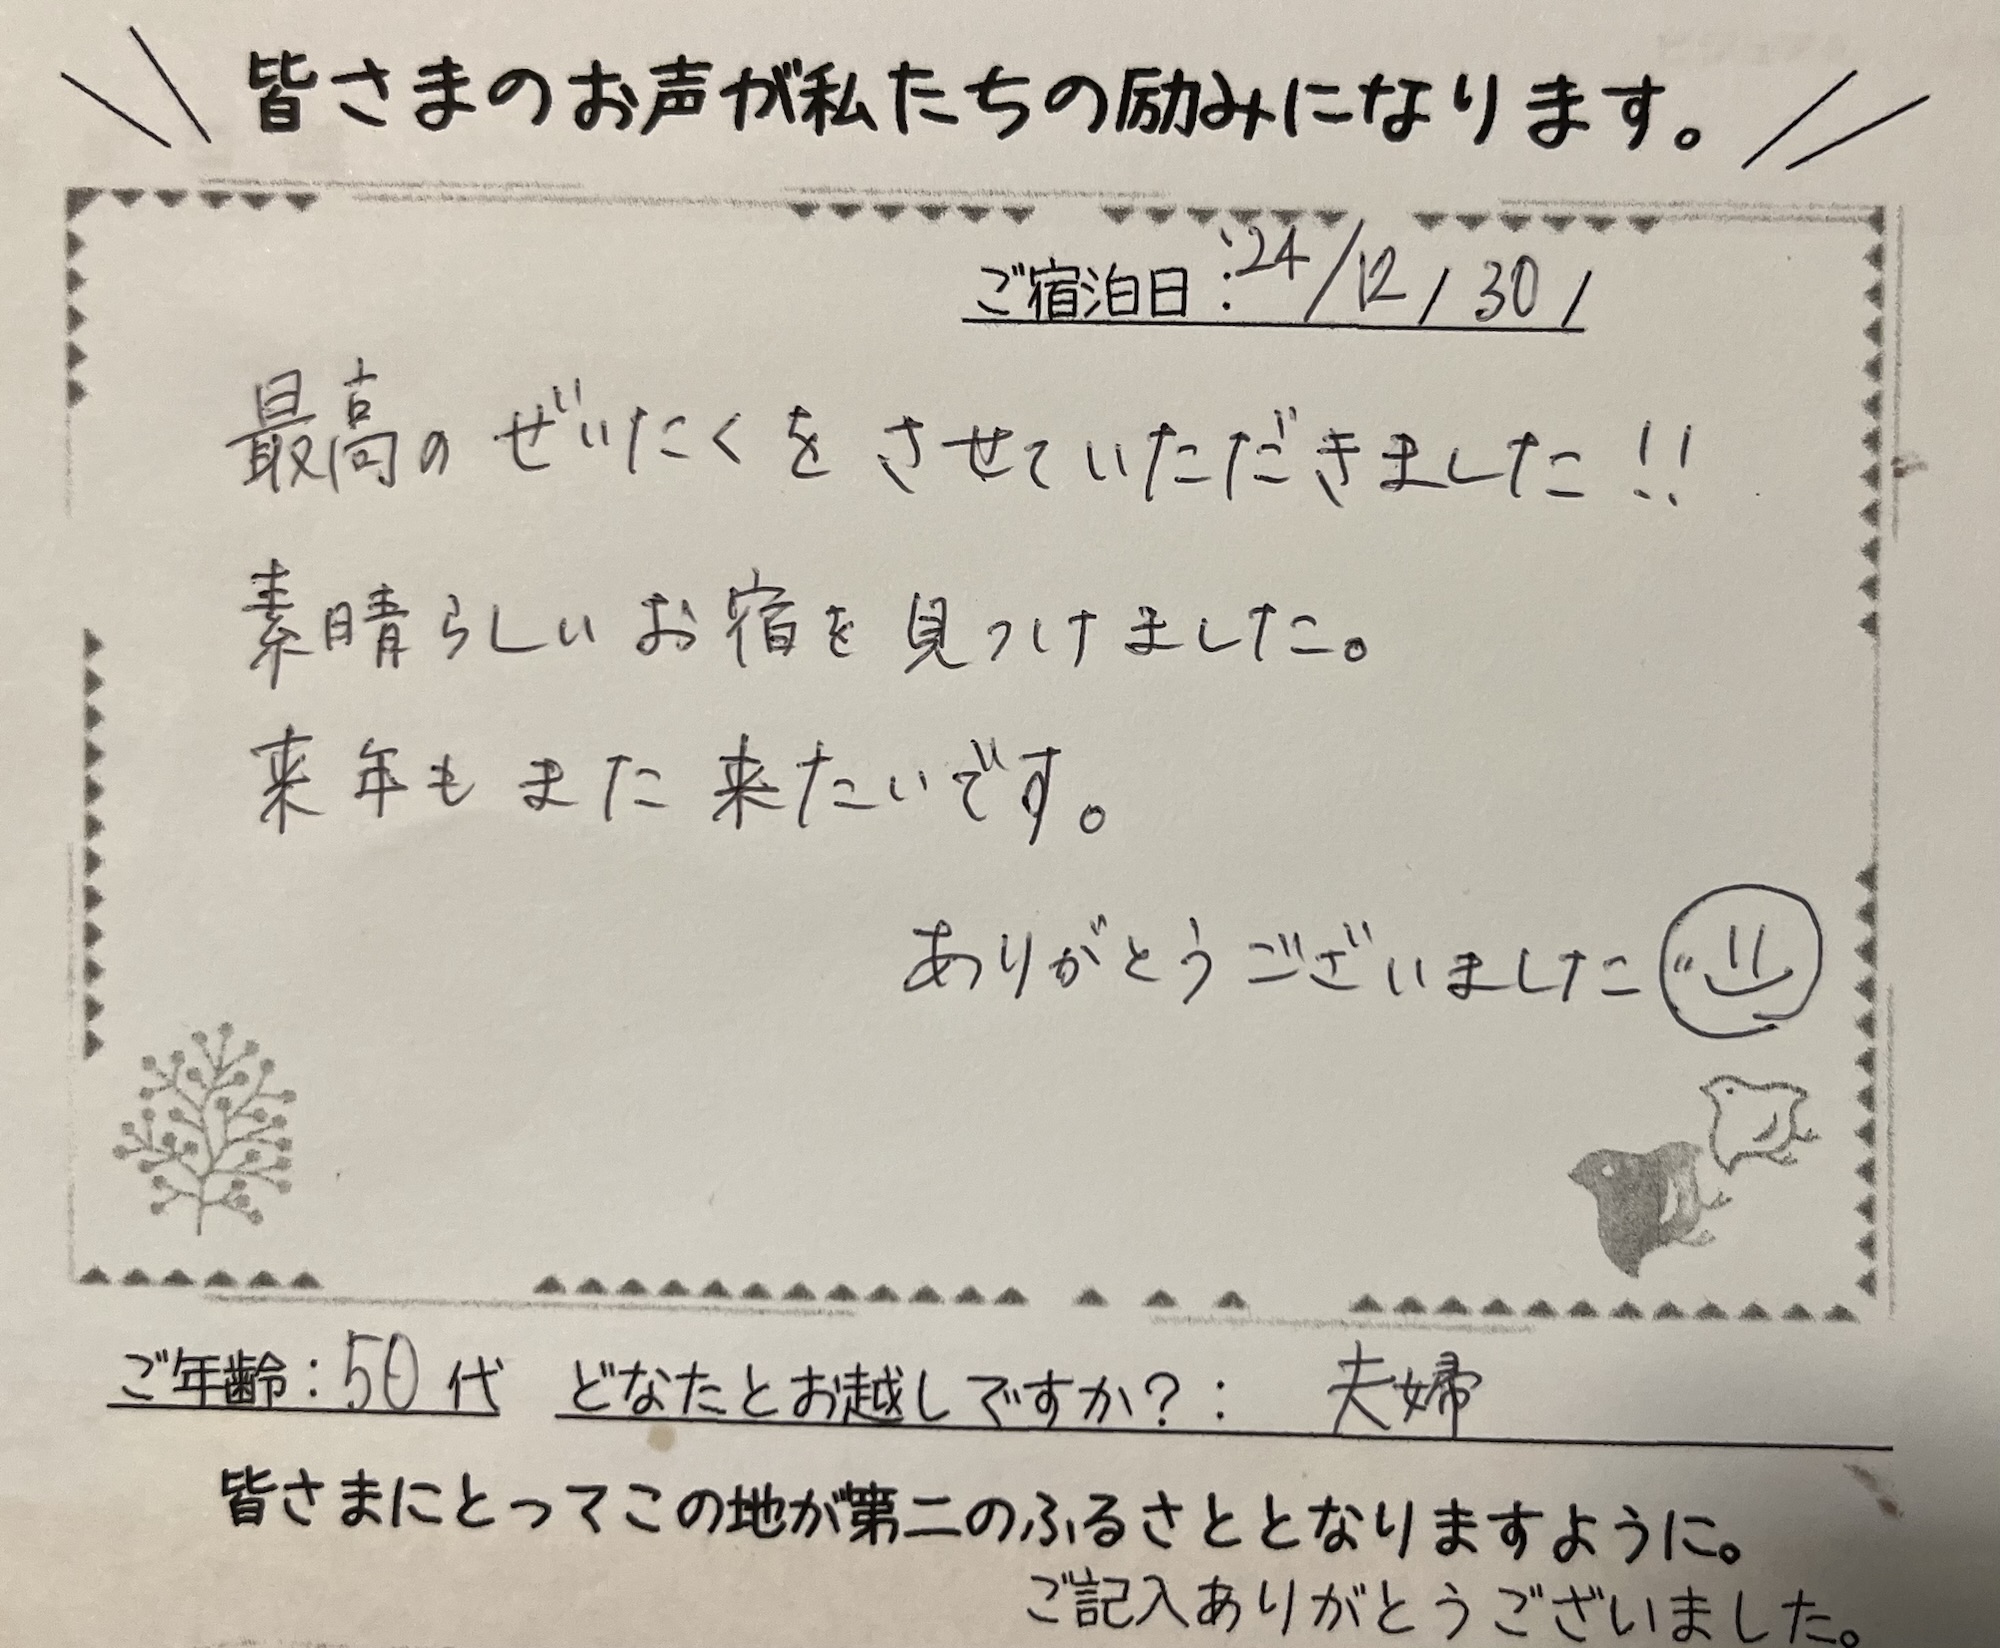 皆さまのお声が私たちの励みになります。
ご宿泊日：'24/12/30/
最高のぜいたくをさせていただきました!!
素晴らしいお宿を見つけました。
来年もまた来たいです。
ありがとうございました
ご年齢：50代 どなたとお越しですか？： 夫婦
皆さまにとってこの地が第二のふるさととなりますように。
ご記入ありがとうございました。